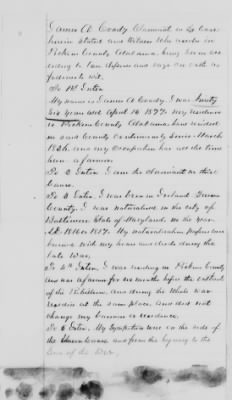 James A Coady Claimant in the
Pickens County Alabama being
to law deposes and says on oath as
follows to wit.
To 1st Inter.
My name is James A Coady. I was Seventy
Six Years old April 14 1877. My residence
is Pickens County Alabama have resided
in said County Continuously Since March
1836 and my Occupation has all the time
been a farmer.
To 2 Inter. I am the claimant in these
Cause.
To 3 Inter. I was born in Ireland
County. I was naturalized in the city of
Baltimore State of Maryland in the year
1816 or 1817. My naturalization papers were
burned with my house and desk during the
late War.
To 4th Inter. I was residing in Pickens County
and was a farmer for six months before the outbreak
of the Rebellion, and during the whole War
reside at the same place and did not
change my business or residence.
To 5 Inter. My Sympathies were on the side of
the Union Cause and from the beginning to the
End of the War.